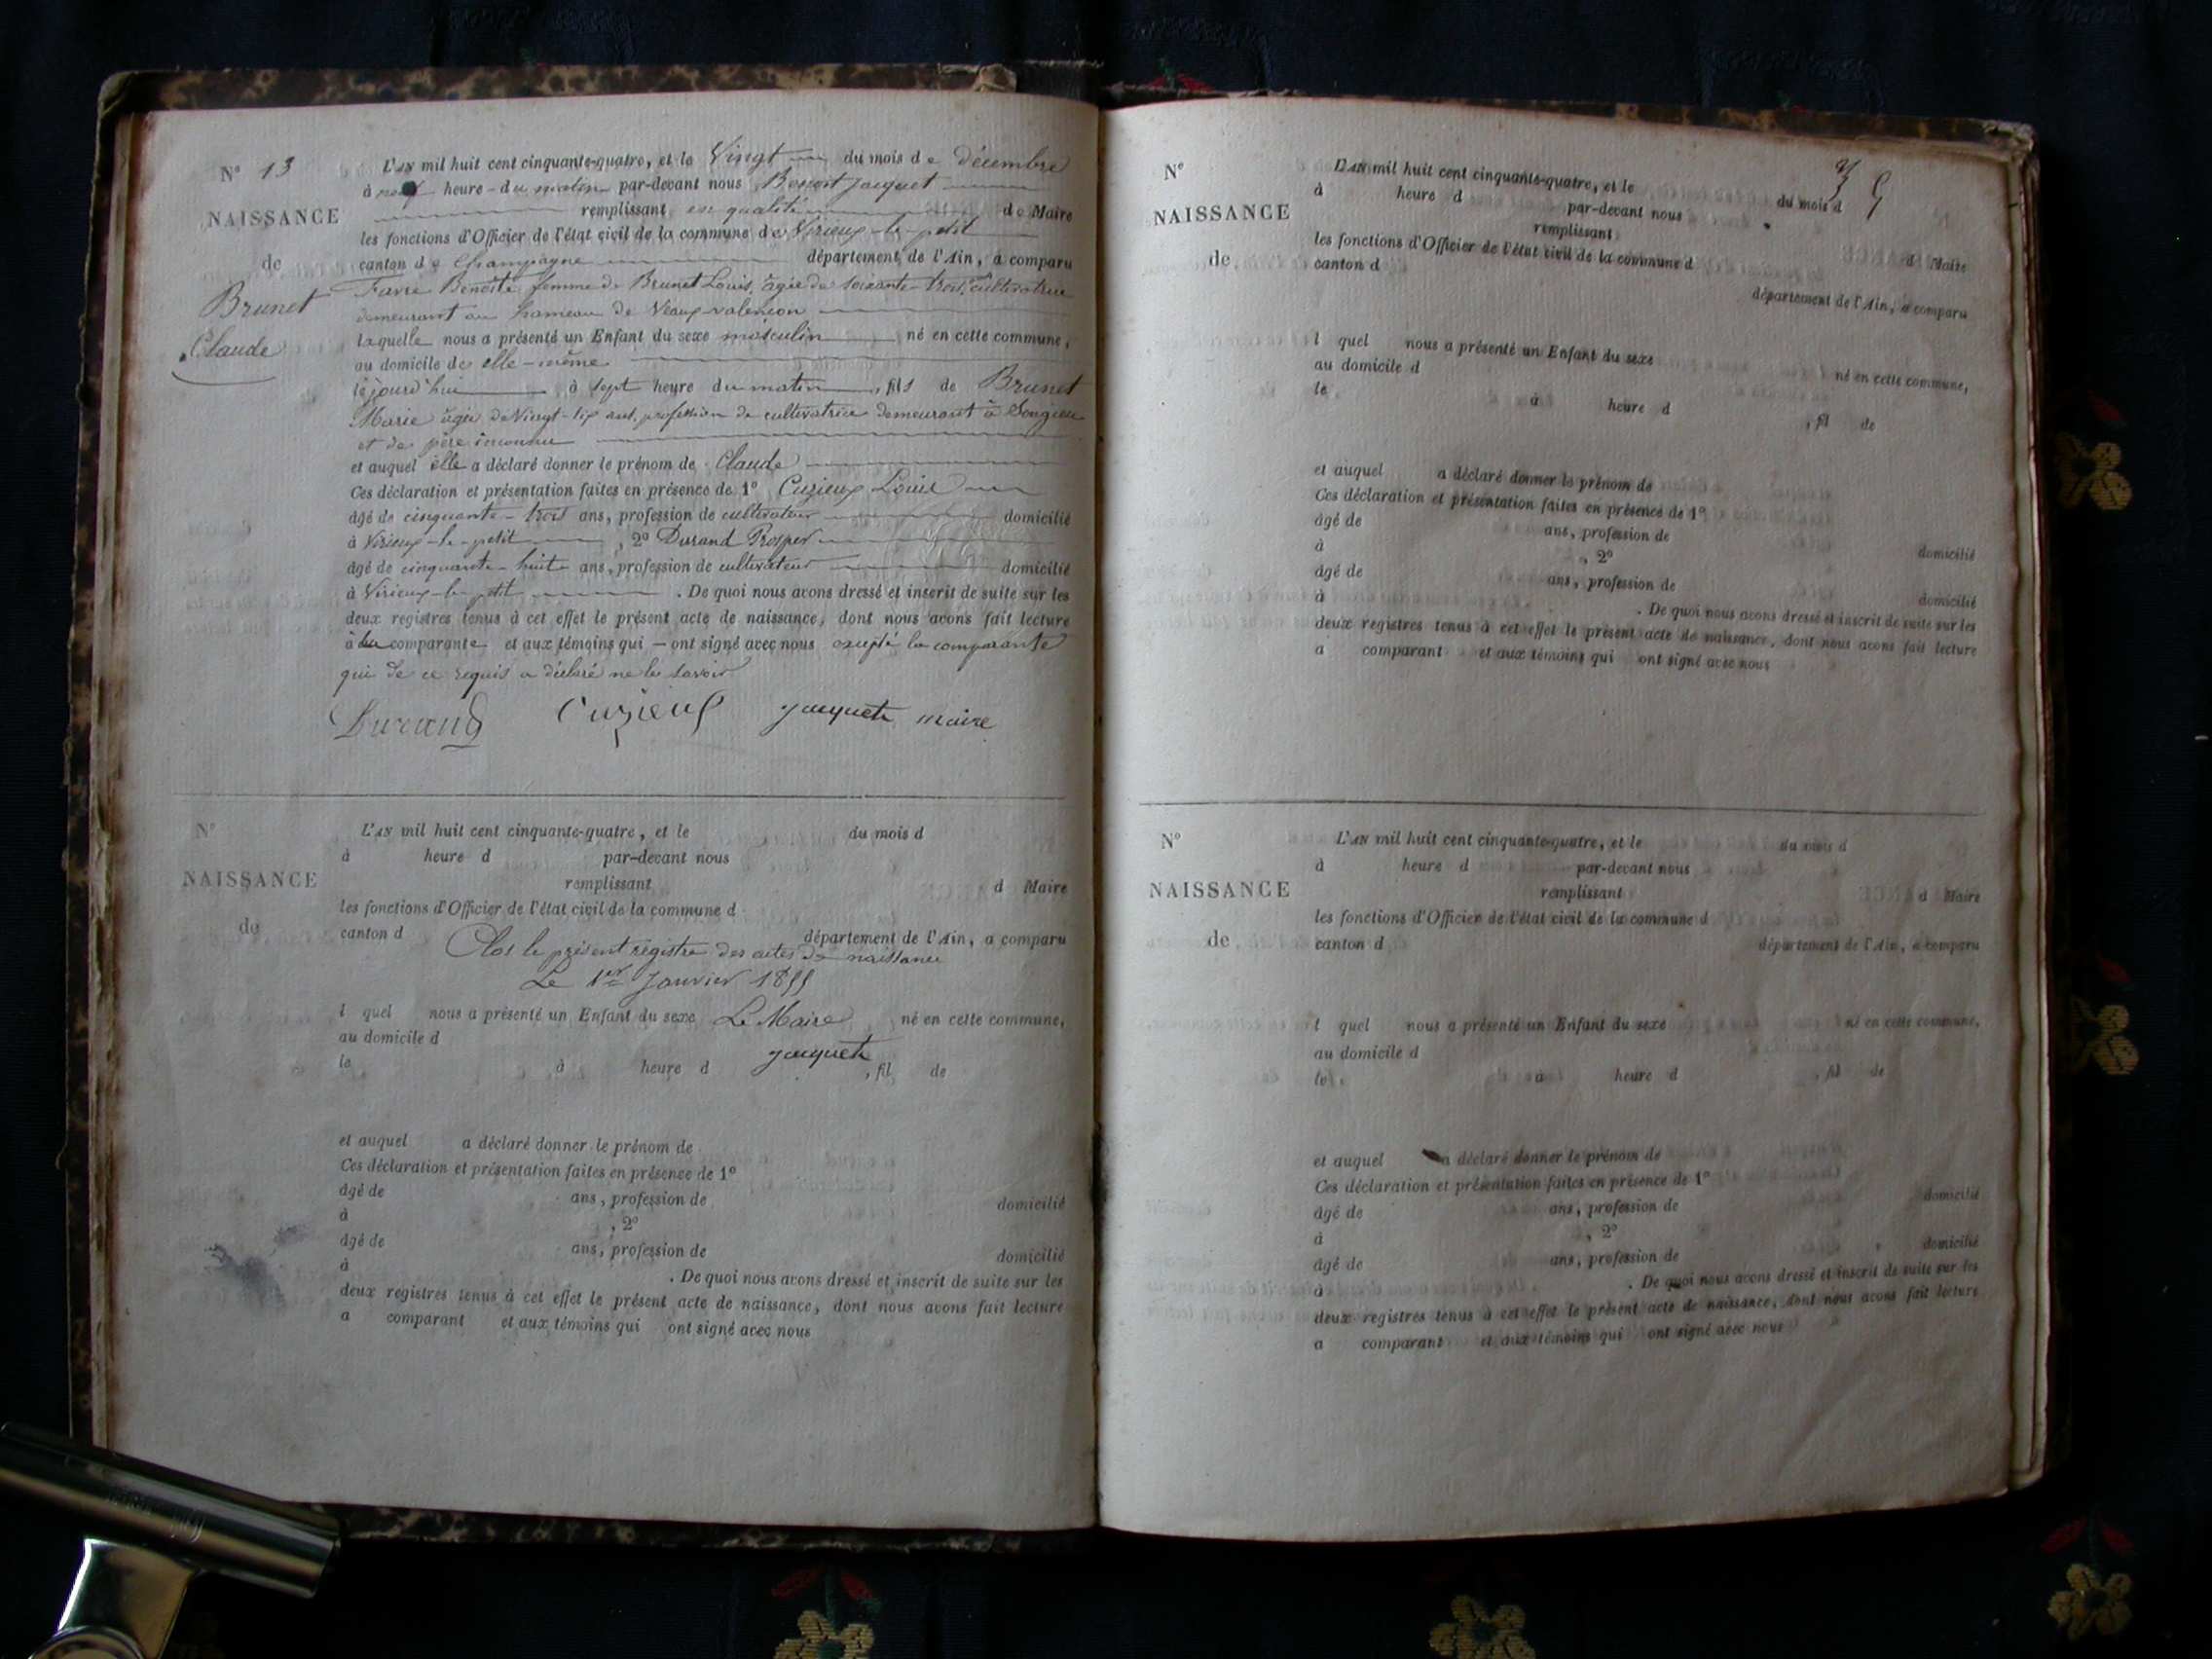 N° 13
NAISSANCE
de
Brunet
Claude
L'AN mil huit cent cinquante-quatre, et le Vingt du mois de décembre
à heure du matin par-devant nous Benoit Jacquet
remplissant en qualité de Maire
les fonctions d'Officier de l'état civil de la commune de Virieux-le-petit
canton de Champagne département de l'Ain, a comparu
Favre Benoîte femme de Brunet Louis, âgée de soixante-trois, cultivatrice
demeurant au hameau de Veaux-valençon
laquelle nous a présenté un Enfant du sexe masculin né en cette commune,
au domicile de elle-même
le jourd'hui à sept heure du matin, fils de Brunet
Marie âgée de Vingt-six ans, profession de cultivatrice demeurant à Songieu
et de père inconnu
et auquel elle a déclaré donner le prénom de Claude
Ces déclaration et présentation faites en présence de 1° Cuzieux Louis
âgé de cinquante-trois ans, profession de cultivateur domicilié
à Virieux-le-petit, 2° Durand Prosper
âgé de cinquante-huit ans, profession de cultivateur domicilié
à Virieux-le-petit. De quoi nous avons dressé et inscrit de suite sur les
deux registres tenus à cet effet le présent acte de naissance, dont nous avons fait lecture
à la comparante et aux témoins qui — ont signé avec nous excepté la comparante
qui de ce requis a déclaré ne le savoir
Durand Cuzieux Jacquet maire
N°
NAISSANCE
de
L'AN mil huit cent cinquante-quatre, et le du mois d
à heure d par-devant nous
remplissant d Maire
les fonctions d'Officier de l'état civil de la commune d
canton d département de l'Ain, a comparu
Clos le présent régistre des actes de naissance
Le 1er Janvier 1855
l quel nous a présenté un Enfant du sexe né en cette commune,
Le Maire
au domicile d
Jacquet
le à heure d , fil de
et auquel a déclaré donner le prénom de
Ces déclaration et présentation faites en présence de 1°
âgé de ans, profession de domicilié
à , 2°
âgé de ans, profession de domicilié
à . De quoi nous avons dressé et inscrit de suite sur les
deux registres tenus à cet effet le présent acte de naissance, dont nous avons fait lecture
a comparant et aux témoins qui ont signé avec nous
N°
NAISSANCE
de
L'AN mil huit cent cinquante-quatre, et le du mois d
à heure d par-devant nous
remplissant d Maire
les fonctions d'Officier de l'état civil de la commune d
canton d département de l'Ain, a comparu
l quel nous a présenté un Enfant du sexe né en cette commune,
au domicile d
le à heure d , fil de
et auquel a déclaré donner le prénom de
Ces déclaration et présentation faites en présence de 1°
âgé de ans, profession de domicilié
à , 2°
âgé de ans, profession de domicilié
à . De quoi nous avons dressé et inscrit de suite sur les
deux registres tenus à cet effet le présent acte de naissance, dont nous avons fait lecture
a comparant et aux témoins qui ont signé avec nous
N°
NAISSANCE
de
L'AN mil huit cent cinquante-quatre, et le du mois d
à heure d par-devant nous
remplissant d Maire
les fonctions d'Officier de l'état civil de la commune d
canton d département de l'Ain, a comparu
l quel nous a présenté un Enfant du sexe né en cette commune,
au domicile d
le à heure d , fil de
et auquel a déclaré donner le prénom de
Ces déclaration et présentation faites en présence de 1°
âgé de ans, profession de domicilié
à , 2°
âgé de ans, profession de domicilié
à . De quoi nous avons dressé et inscrit de suite sur les
deux registres tenus à cet effet le présent acte de naissance, dont nous avons fait lecture
a comparant et aux témoins qui ont signé avec nous